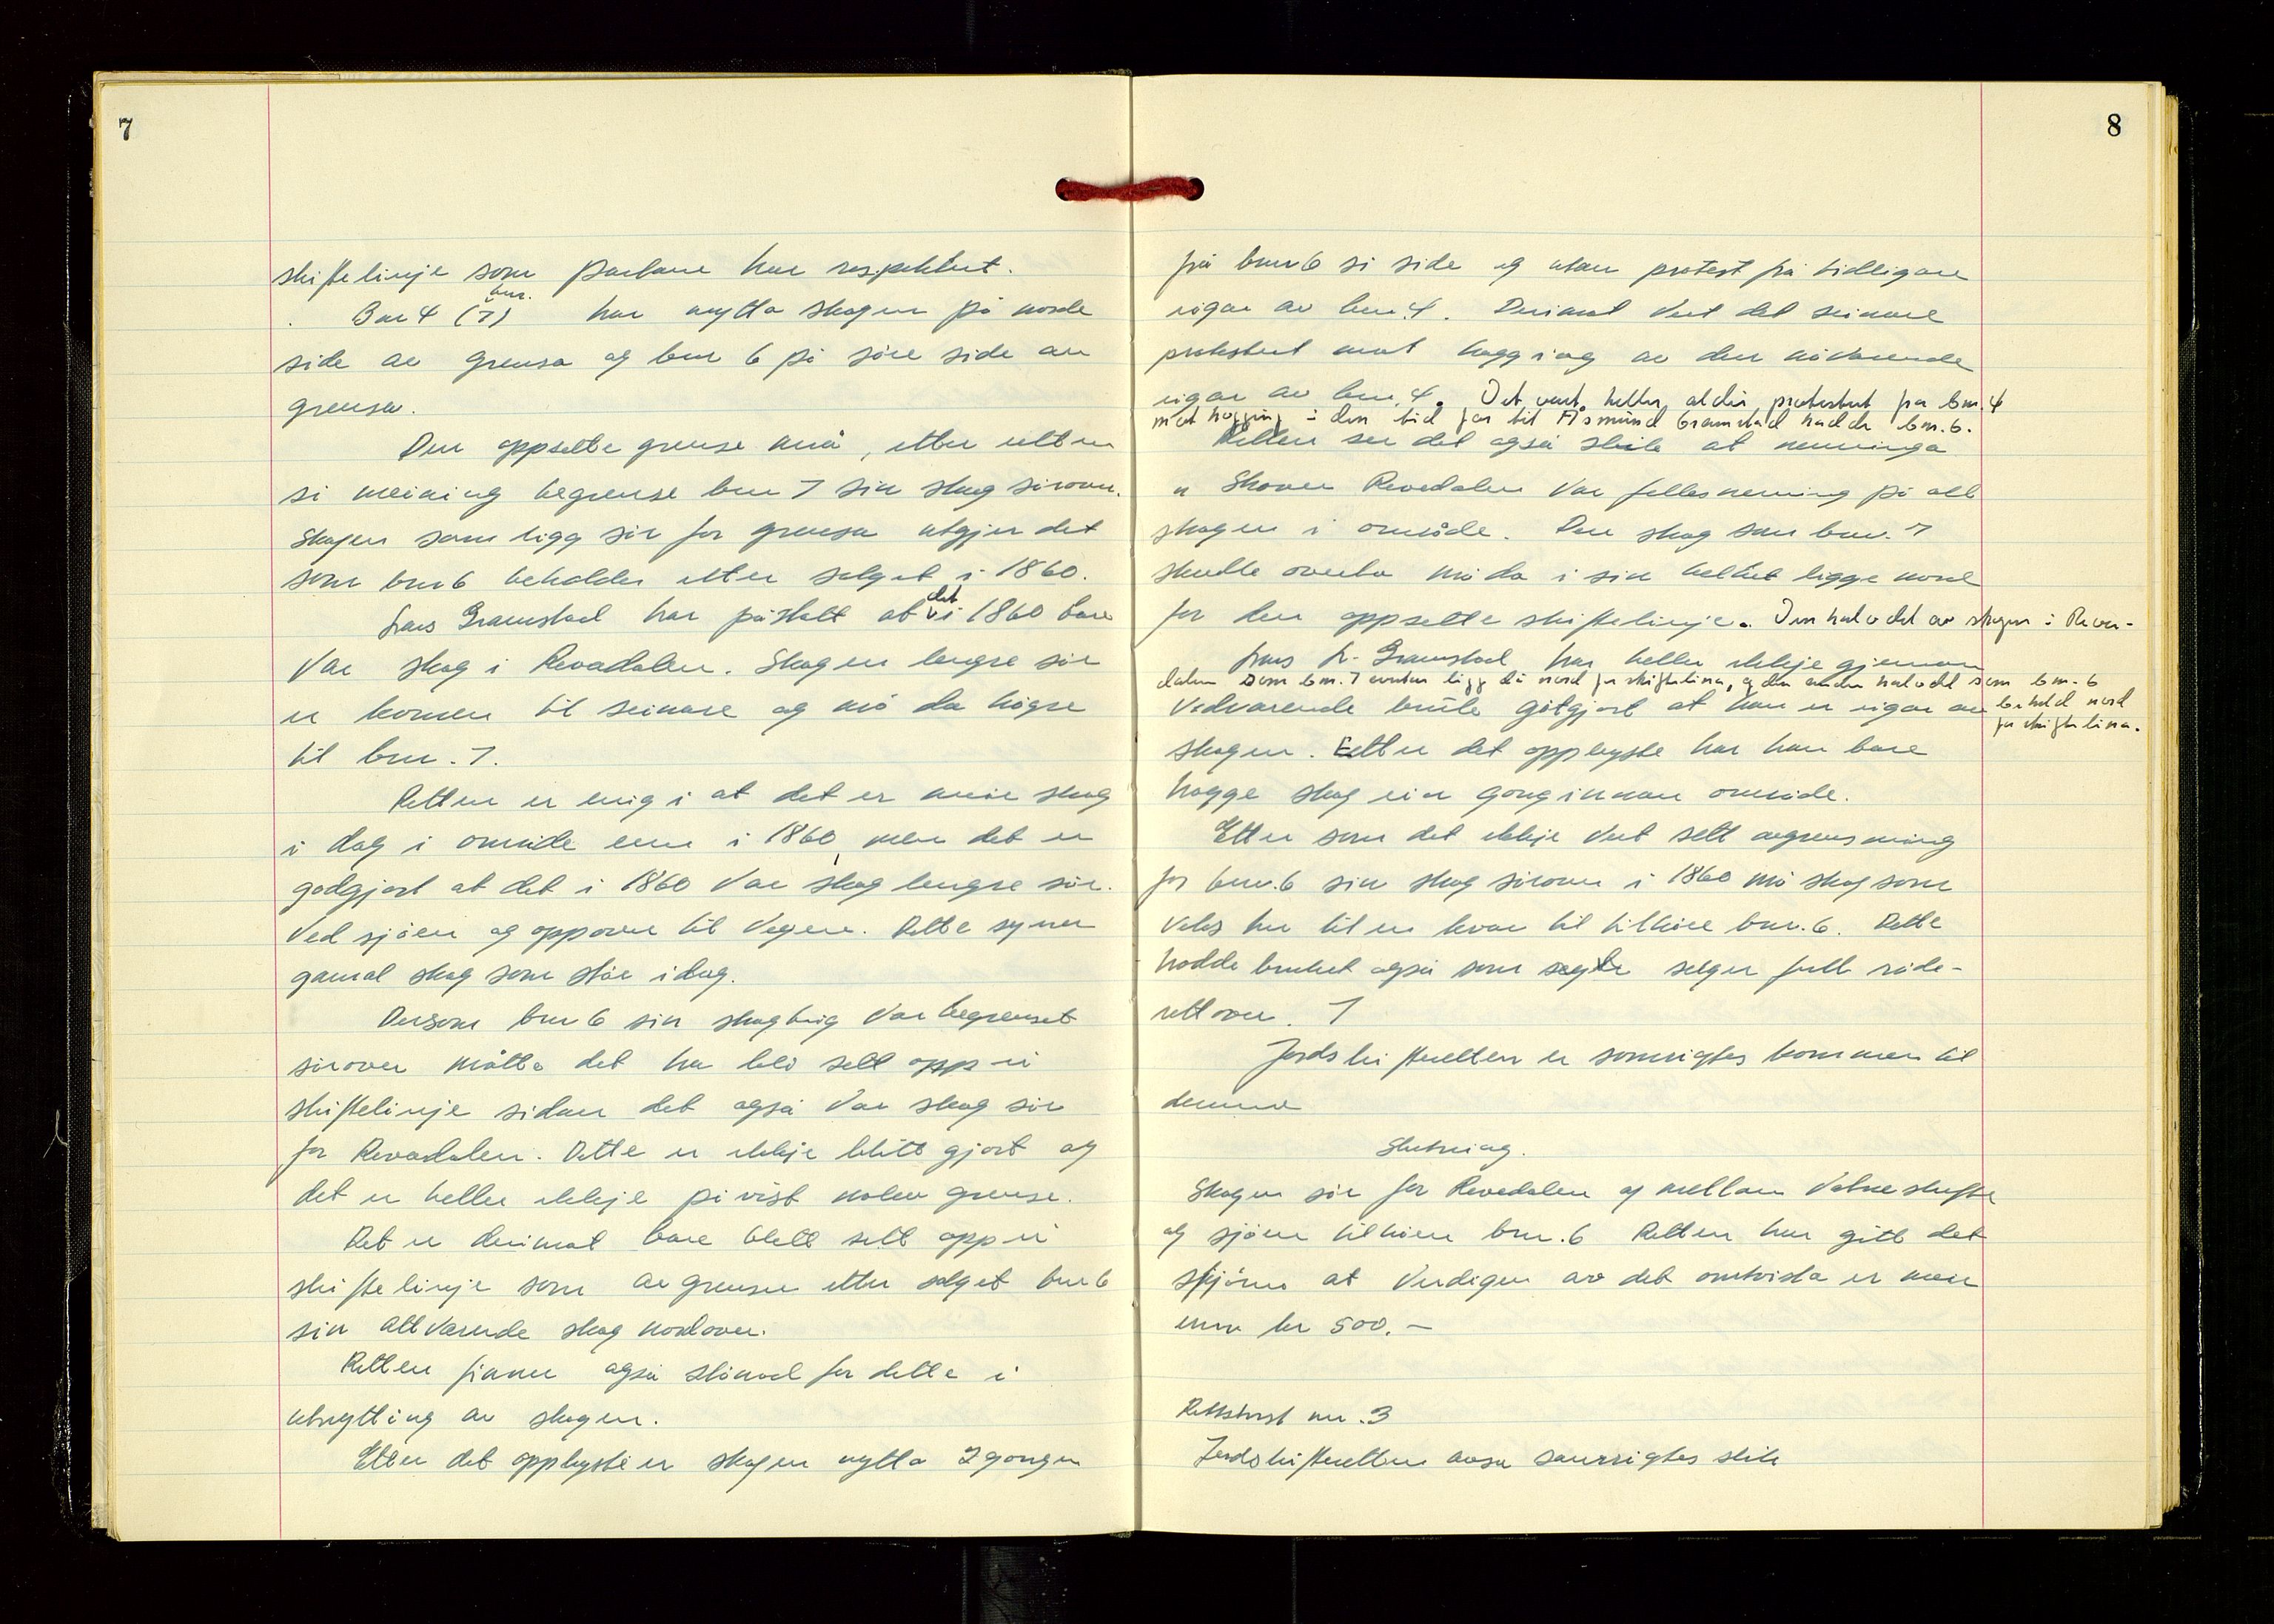 7
skiftelinje som partane har respektert.
Bnr 4 (7) bnr. har nytta skogen på norde
side av grensa og bnr 6 på søre side av
grensa.
Den oppsette grense må, etter retten
si meining begrense bnr 7 sin skog sørover.
Skogen som ligg sør for grensa utgjer det
som bnr 6 beholder etter salget i 1860.
Lars Gramstad har påstått at det i 1860 bare
var skog i Revadalen. Skogen lengre sør
er komen til seinare og må da høyre
til bnr. 7.
Retten er enig i at det er meir skog
i dag i område enn i 1860, men det er
godgjort at det i 1860 var skog lengre sør.
Ved sjøen og oppover til vegen. Dette syner
gamal skog som står i dag.
Dersom bnr 6 sin skogteig var begrenset
sørover måtte det ha blo sett opp ei
skiftelinje sidan det også var skog sør
for Revadalen. Dette er ikkje blitt gjort og
det er heller ikkje påvist noken grense.
Det er derimot bare blitt sett opp ei
skiftelinje som avgrenser etter salget bnr 6
sin attvarende skog nordover.
Retten finner også stønad for dette i
utnytting av skogen.
Etter det opplyste er skogen nytta 2 gonger
8
frå bnr 6 si side og utan protest frå tidligare
eigar av bnr. 4. Derimot vert det seinare
protestert mot hogging av den nåværende
eigar av bnr. 4. Det vart heller aldri protestert fra bnr. 4
mot hogging i den tid far til Åsmund Gramstad hadde bnr. 6.
Retten ser det også slik at nemninga
Skoven Revedalen var fellesnemning på all
skogen i område. Den skog som bnr. 7
skulle overta må da i sin helhet ligge nord
for den oppsette skiftelinje. Den halvdel av skogen i Reve-
dalen som bnr. 7 overtar ligg då nord for skiftelina, og den andre halvdel som bnr. 6
beheld nord
for skiftelina.
Lars L. Gramstad har heller ikkje gjennom
vedvarende bruk gotgjort at han er eigar av
skogen. Etter det opplyste har han bare
hogge skog ein gong innan område.
Etter som det ikkje vert sett avgrensning
for bnr. 6 sin skog sørover i 1860 må skog som
veks her til en kvar tid tilhøre bnr. 6. Dette
hadde bruket også som selger full råde-
rett over.
Jordskifteretten er samrøystes kommen til
denne
Slutning.
Skogen sør for Revedalen og mellom Vatneskifte
og sjøen tilhører bnr. 6 Retten har gitt det
skjønn at verdigen av det omtvista er meir
enn kr 500.-
Rettsbrot nr. 3
Jordskifteretten avsa samrøystes slik